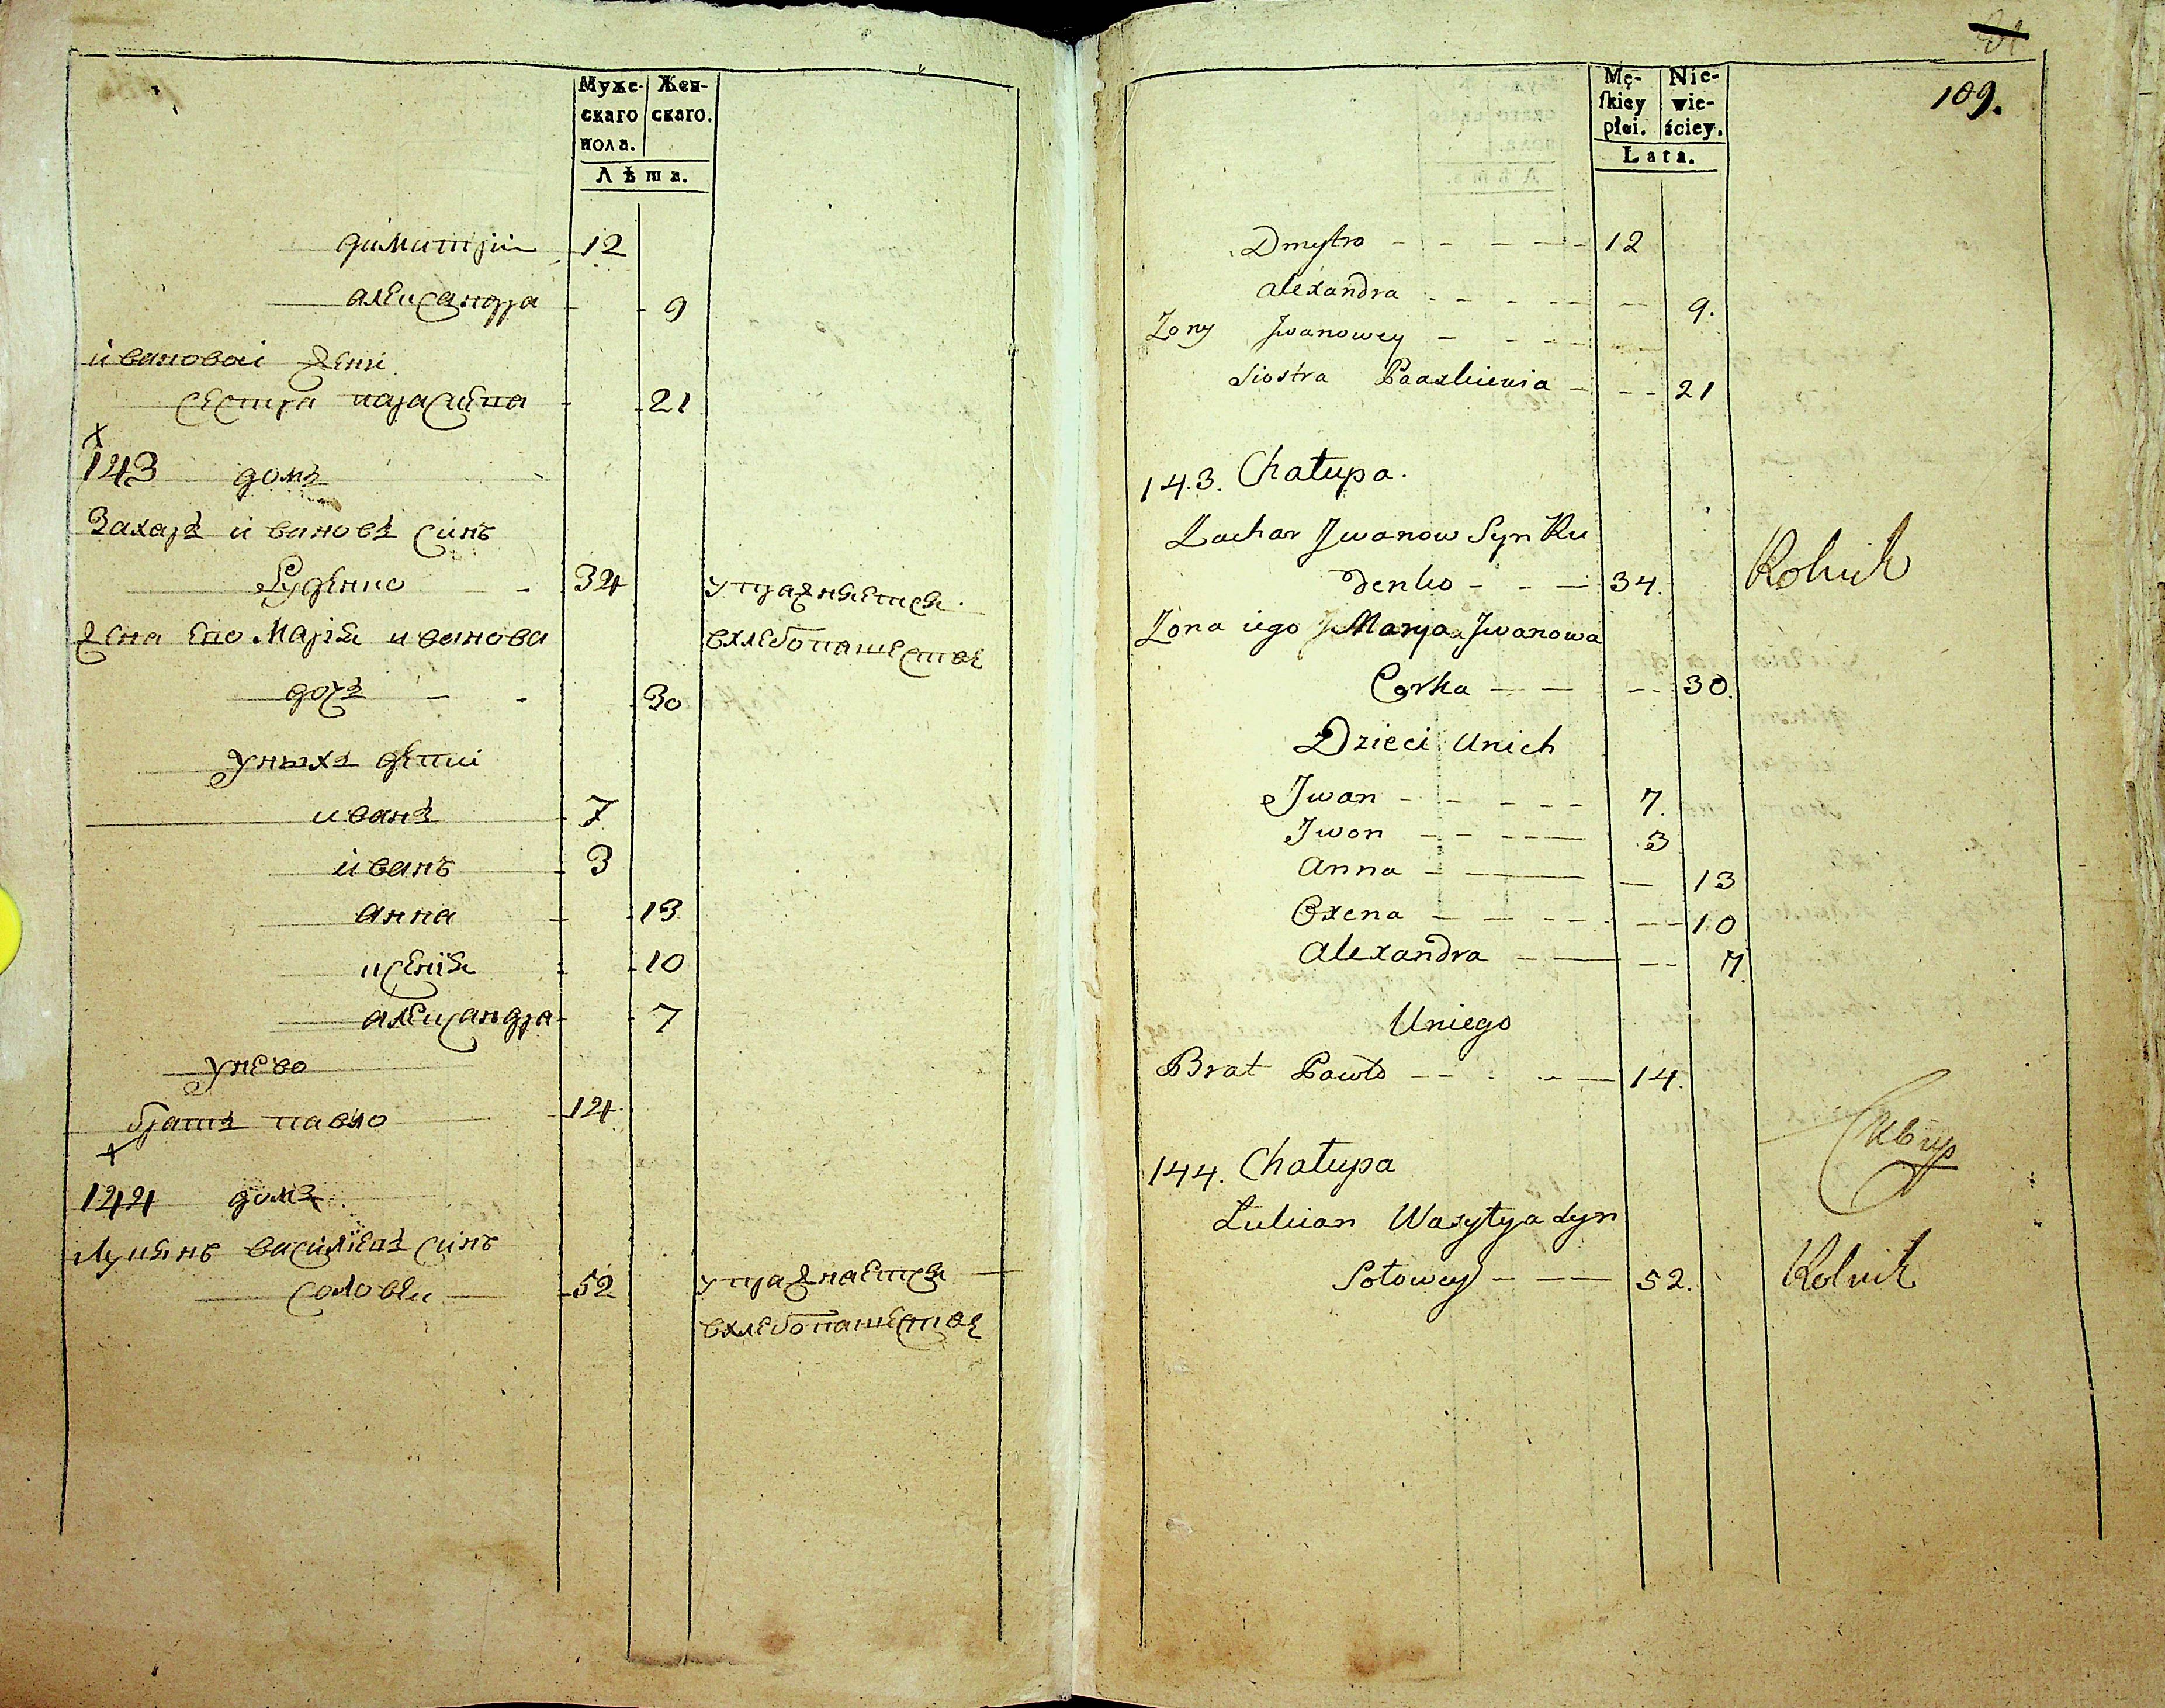 Муже-
скаго
пола.
Жен-
скаго.
Лѣта.
димитрiи 12
алеѯандра 9
ивановой жени
сестра параскева 21
143 домъ
Захаръ ивановъ синъ
Руденко 34 упражняется
вхлебопашестве
жена его Марiя иванова
дочъ 30
унихъ дети
иванъ 7
иванъ 3
анна 13
ксенiя 10
александра 7
унево
братъ павло 14
144 домъ
Лукянъ василiевъ синъ
соловей 52 упражнается
вхлебопашестве
109.
Mę-
ſkiey
płei.
Nie-
wie-
ściey.
Lata.
Dmytro 12
Alexandra 9.
Zony Jwanowey
Siostra Paaskiewia 21
143. Chałupa.
Zachar Jwanow Syn Ru
denko 34. Rolnik
Zona iego Marya Jwanowa
Corka 30.
Dzieci Unich
Jwan 7.
Jwan 3
Anna 13
Oxena 10
Alexandra 7.
Uniego
Brat Pawło 14.
144. Chałupa
Łukian Wasyłya Syn
Sołowey 52. Rolnik